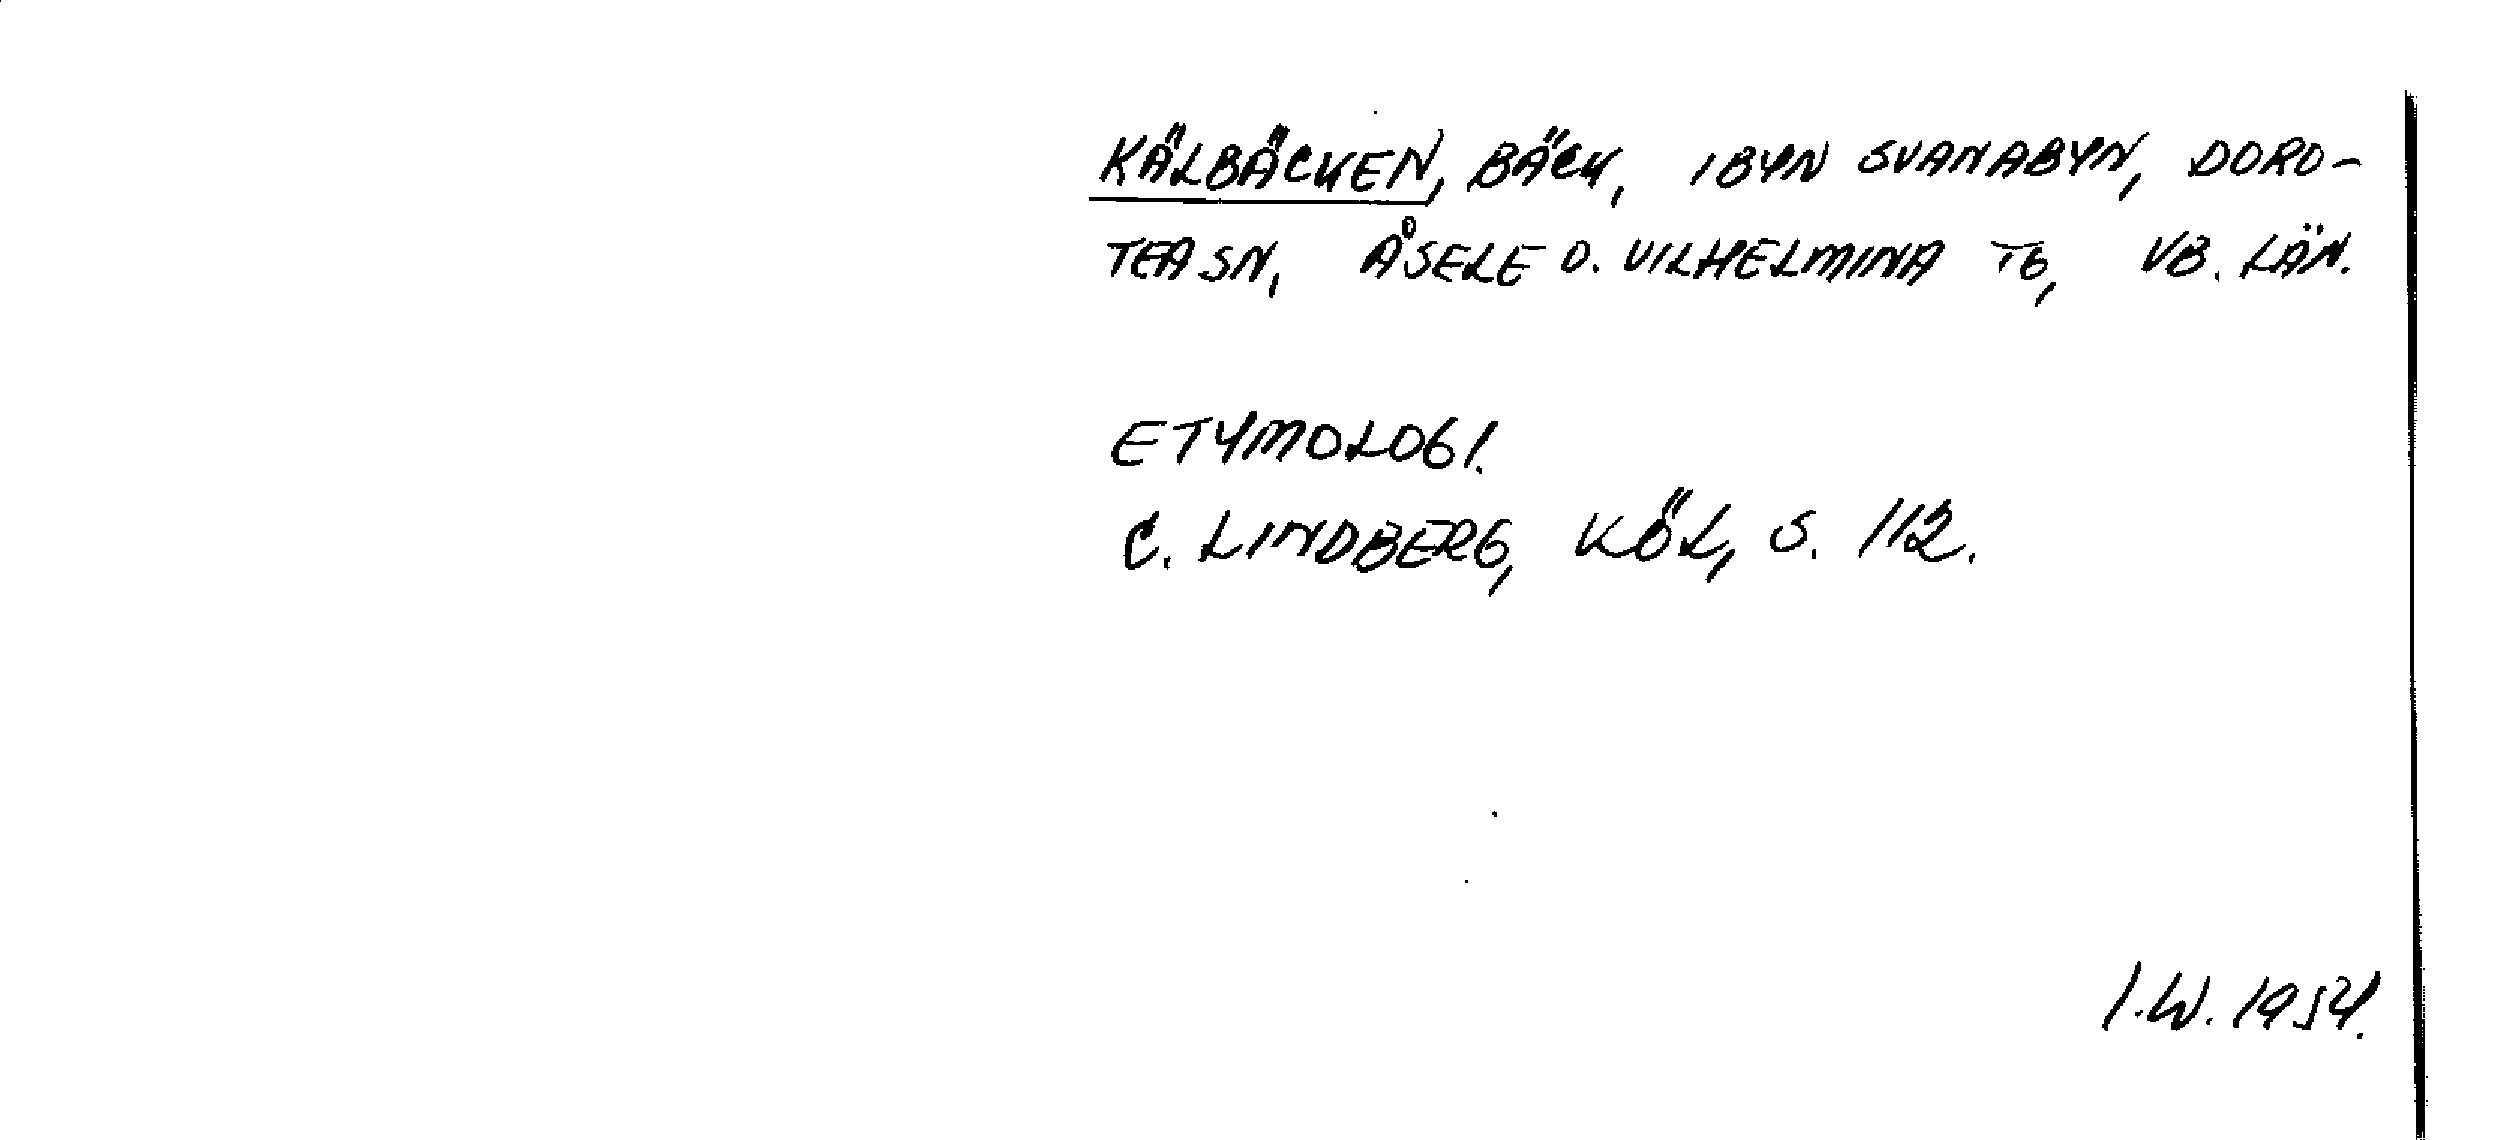 KÄLBÄCKEN, BÄCK, I BYN SVANABYN, DORO-
TEA SN, ÅSELE O. VILHELMINA TG, VB. LÄN.
ETYMOLOGI.
C. LINDBERG, KÖL, S. 112.
I.W. 1954.